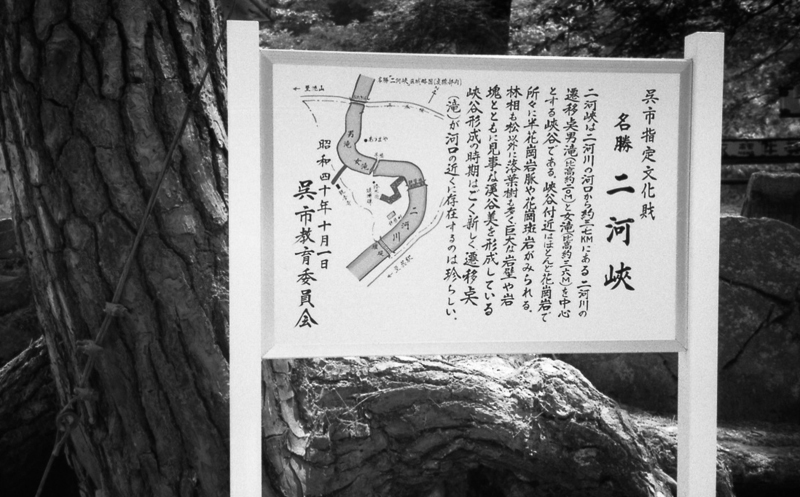 呉市指定文化財
名勝 二河峡
二河峡は二河川の河口から約三・七KMにある二河川の
遷移点男滝(比高約一〇M)と女滝(比高約三六M)を中心
とする峡谷である。峡谷付近はほとんど花崗岩で
所々に半花崗岩脈や花崗斑岩がみられる。
林相も松以外に落葉樹も多く巨大な岩壁や岩
塊とともに見事な渓谷美を形成している
峡谷形成の時期はごく新しく遷移点
(滝)が河口の近くに存在するのは珍しい。
名勝 二河峡
男滝
女滝
二河川
昭和四十年十月一日
呉市教育委員会